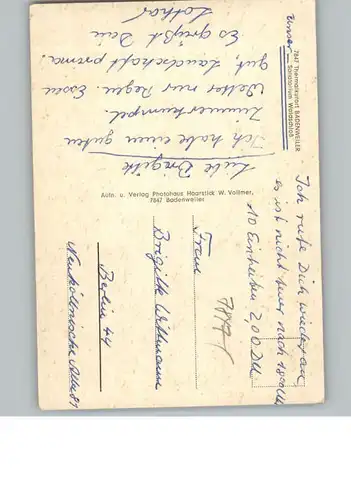 7847 Thermalkurort BADENWEILER
Unser — Sanatorium Waldschloß
Liebe Brigitte
Ich habe einen guten
Zimmerkumpel.
Wetter nur Regen. Essen
gut, Landschaft prima.
Es grüßt Dein
Lothar
Aufn. u. Verlag Photohaus Haarstick W. Vollmer,
7847 Badenweiler
Ich rufe Dich wieder an,
es ist nicht teuer nach 18 Uhr
10 Einheiten 2,00 DM
Frau
Brigitte
Berlin 44
7847